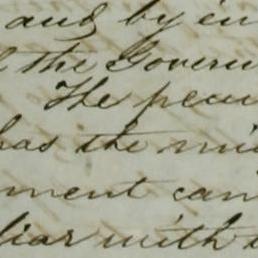 and by in
the Govern
The pecu
has the mi
ment can
liar with